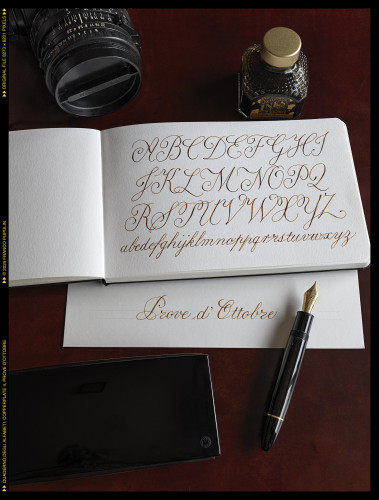 ABCDEFGHI
JKLMNOPQ
RSTUVWXYZ
abcdefghijklmnopqrstuvwxyz
Prove d'Ottobre
ORIGINAL FILE 6273 × 8201 PIXELS
© 2025 FRANCO PUPULIN
QUADERNO DEGLI ALFABETI, COPPERPLATE II, PROVE D'OTTOBRE